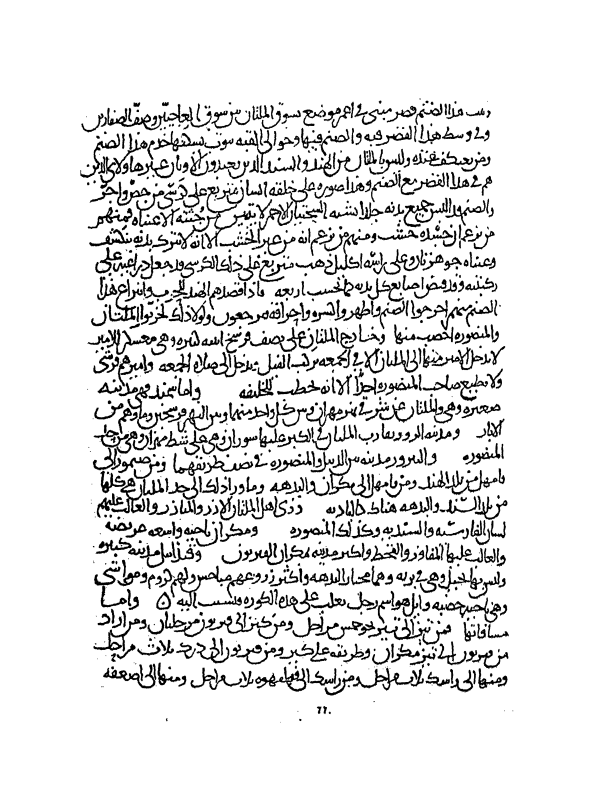 هذا الصنم قصر مبنى في اعمر موضع بسوق الملتان بين سوق العاجيين وصف الصفارين
وفي وسط هذا القصر قبة والصنم فيها وحوالى القبة بيوت يسكنها خدم هذا الصنم
ومن يعكف عنده وليس بالملتان من الهند والسند الذين يعبدون الاوثان غير هاولاى الذين
هم في هذا القصر مع الصنم وهذا صورة على خلقة انسان متربع على كرسى من جص واجر
والصنم قد البس جميع بدنه جلدا يشبه السختيان الاحمر لا يتبين من جثته الا عيناه فمنهم
من يزعم ان جسده خشب ومنهم من يزعم انه من غير الخشب الا انه لا يترك بدنه ينكشف
وعيناه جوهرتان وعلى راسه اكليل ذهب متربع على ذلك الكرسى قد جعل ذراعيه على
ركبتيه وقد قبض اصابع كل يد له كما تحسب اربعة فاذا قصدهم الهند للحرب وانتزاع هذا
الصنم منهم اخرجوا الصنم واظهروا كسره واحراقه فيرجعون ولولا ذلك لخربوا الملتان
والمنصورة اخصب منها وخارج الملتان على نصف فرسخ ابنية كثيرة وهى معسكر للامير
لا يدخل الامير منها الى الملتان الا في الجمعة يركب الفيل ويدخل الى صلاة الجمعة واميرهم قرشى
ولا يطيع صاحب المنصورة ولا احدا الا انه يخطب للخليفة واما بسمد فهى مدينة
صغيرة وهى والملتان عن شرقى نهر مهران وبين كل واحد منهما وبين النهر فرسخين وماوهم من
الابار ومدينة الرور تقارب الملتان في الكبر عليها سوران وهى على شط مهران وهى من حد
المنصورة والنيرون مدينة بين الديبل والمنصورة في نصف طريقهما ومن صيمور الى
قامهل من بلد الهند ومن قامهل الى مكران والبدهه وما ورا ذلك الى حد الملتان هى كلها
من بلد السند والبدهه هناك وزى اهل الملتان الازر والميازر والغالب عليهم
لسان الفارسية والسندية وكذلك المنصورة ومكران ناحية واسعة عريضة
والغالب عليها المفاوز والقحط واكبر مدينة بمكران القنزبور وقندابيل مدينة كبيرة
وليس بها نخيل وهى في برية وهى ممتار البدهه واكثر زروعهم مباخس ولهم كروم ومواشى
وهى ناحية خصبة وابل هو اسم رجل تغلب على هذه الكورة ونسبت اليه واما
مسافاتها فمن تيز الى كيز نحو خمس مراحل ومن كيز الى قنزبور مرحلتان ومن اراد
من قنزبور الى تيز مكران وطريقه على كيز ومن قنزبور الى درك ثلاث مراحل
ومنها الى راسك ثلاث مراحل ومن راسك الى فهلفهره ثلاث مراحل ومنها الى اصفقه
٦٦.